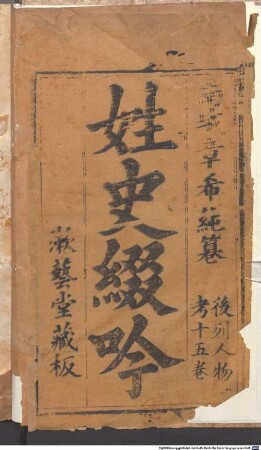 希純纂
後列人物
考十五卷
姓史綴吟
漱藝堂藏板